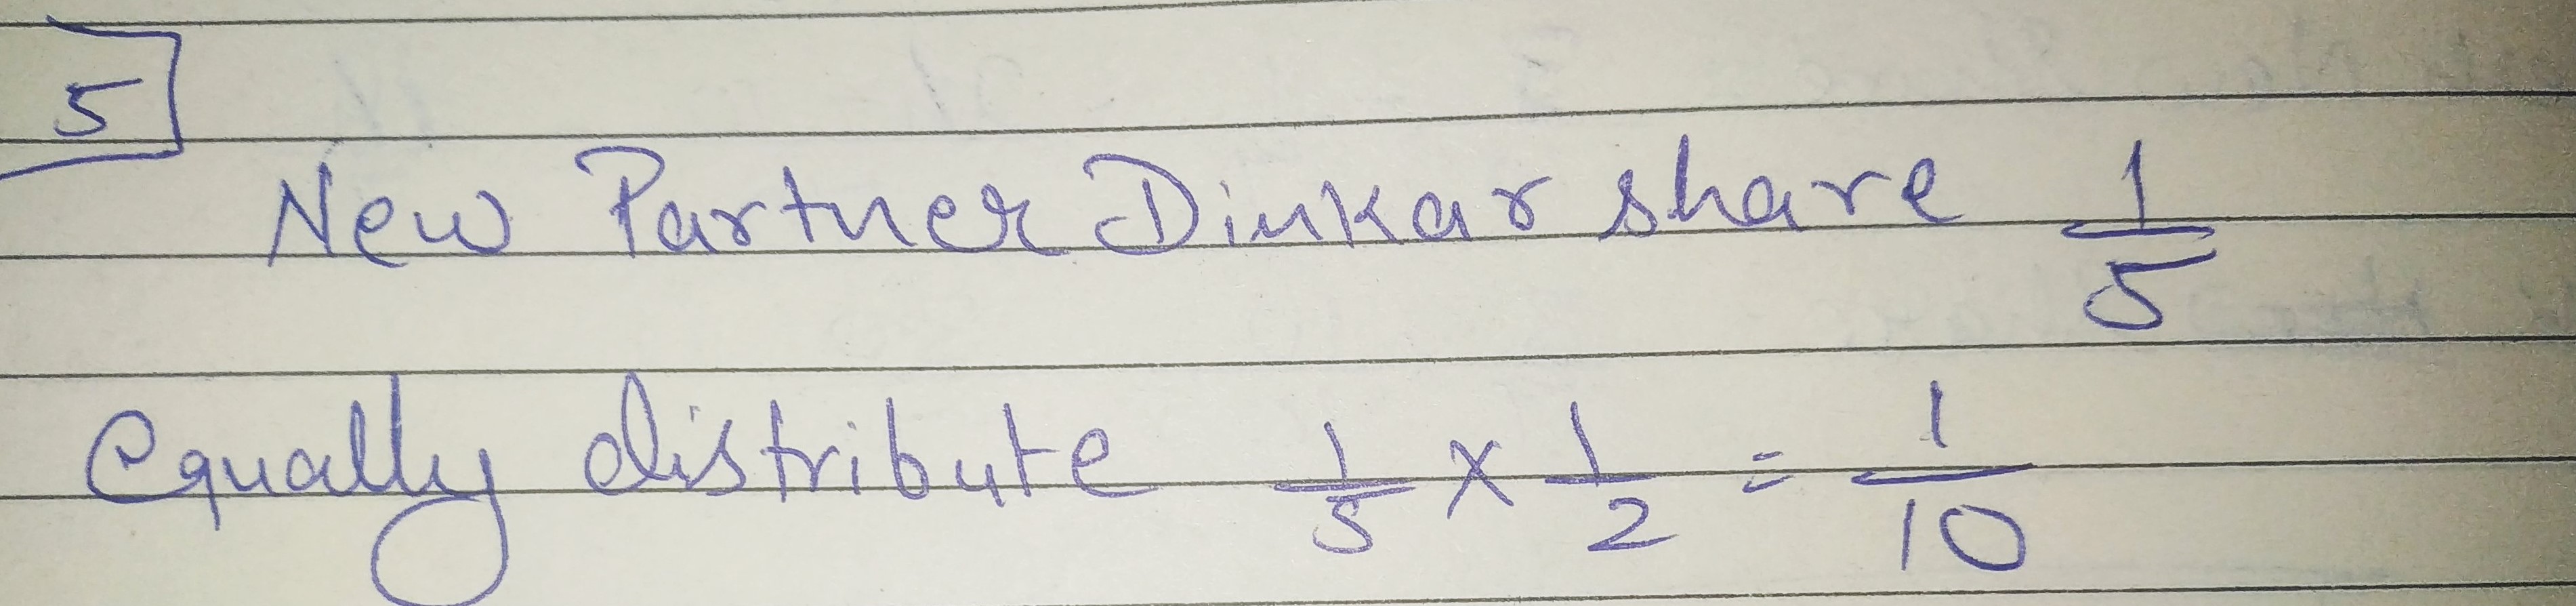 5
New Partner Dinkar share 1/5
Equally distribute 1/5 × 1/2 = 1/10